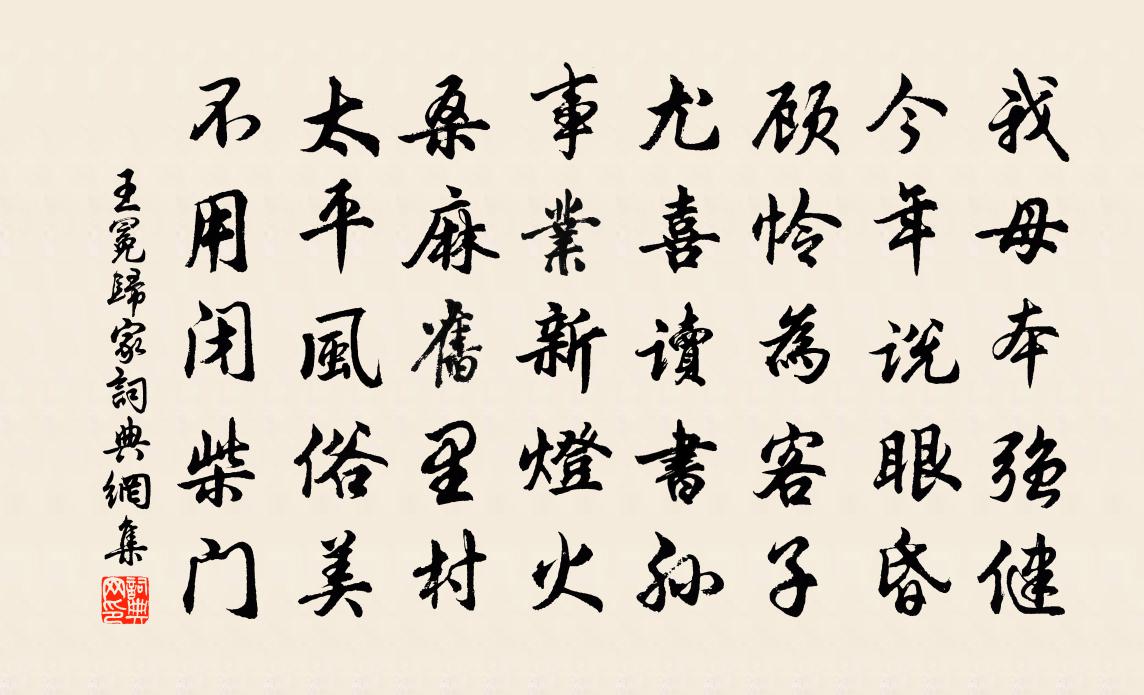 我母本强健
今年说眼昏
顾怜為客子
尤喜讀書孙
事業新燈火
桑麻舊里村
太平風俗美
不用闭柴门
王冕歸家詞典網集
詞典网印